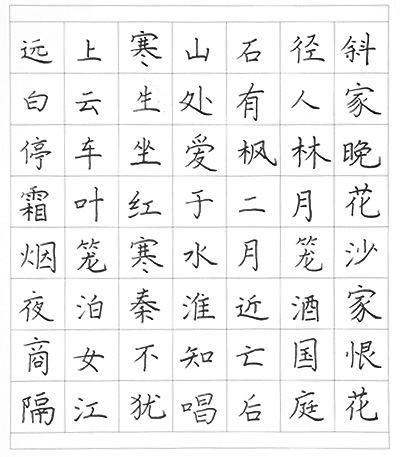 远上寒山石径斜
白云生处有人家
停车坐爱枫林晚
霜叶红于二月花
烟笼寒水月笼沙
夜泊秦淮近酒家
商女不知亡国恨
隔江犹唱后庭花